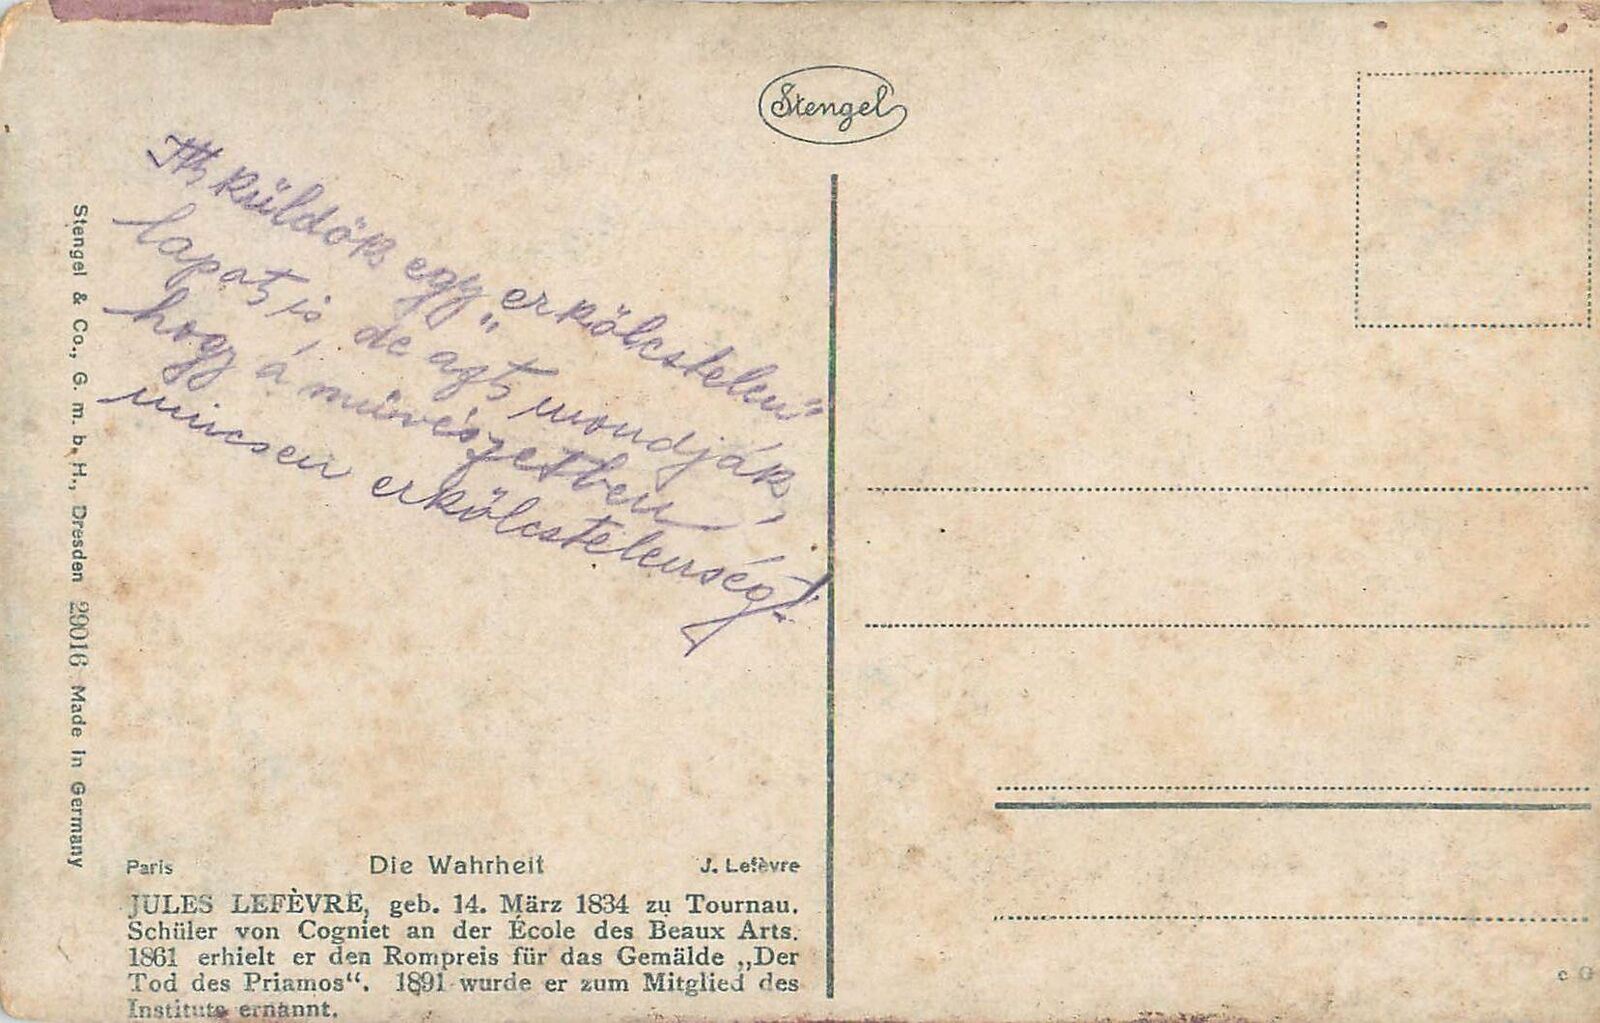 Stengel
Itt küldök egy „erkölcstelen"
lapot is, de azt mondják,
hogy á művészetben
nincsen erkölcstelenség!
Stengel & Co., G. m. b. H., Dresden 29016 Made In Germany
Paris Die Wahrheit J. Lefèvre
JULES LEFÈVRE, geb. 14. März 1834 zu Tournau.
Schüler von Cogniet an der École des Beaux Arts.
1861 erhielt er den Rompreis für das Gemälde „Der
Tod des Priamos“. 1891 wurde er zum Mitglied des
Instituts ernannt.